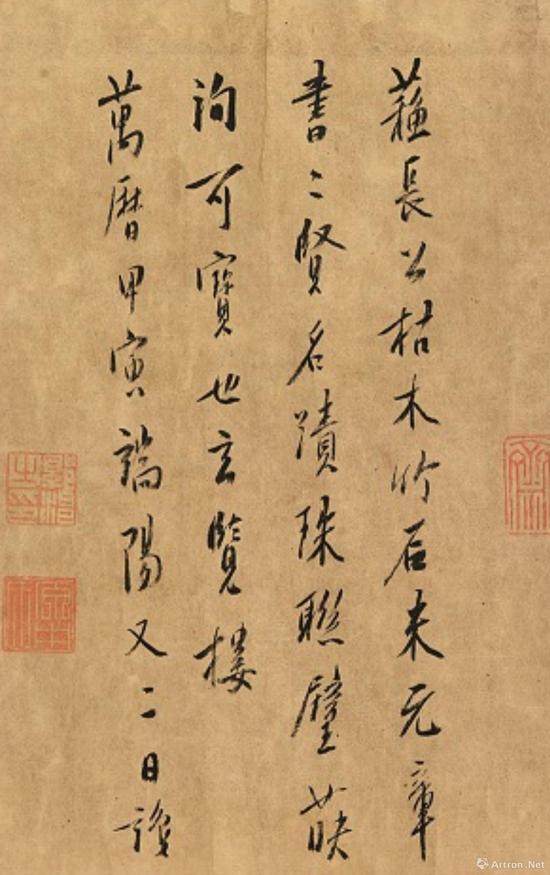 蘇長公枯木竹石米元章
書二賢名蹟珠聯璧映
詢可寶也玄覽樓
萬曆甲寅端陽又二日識
Artron.Net